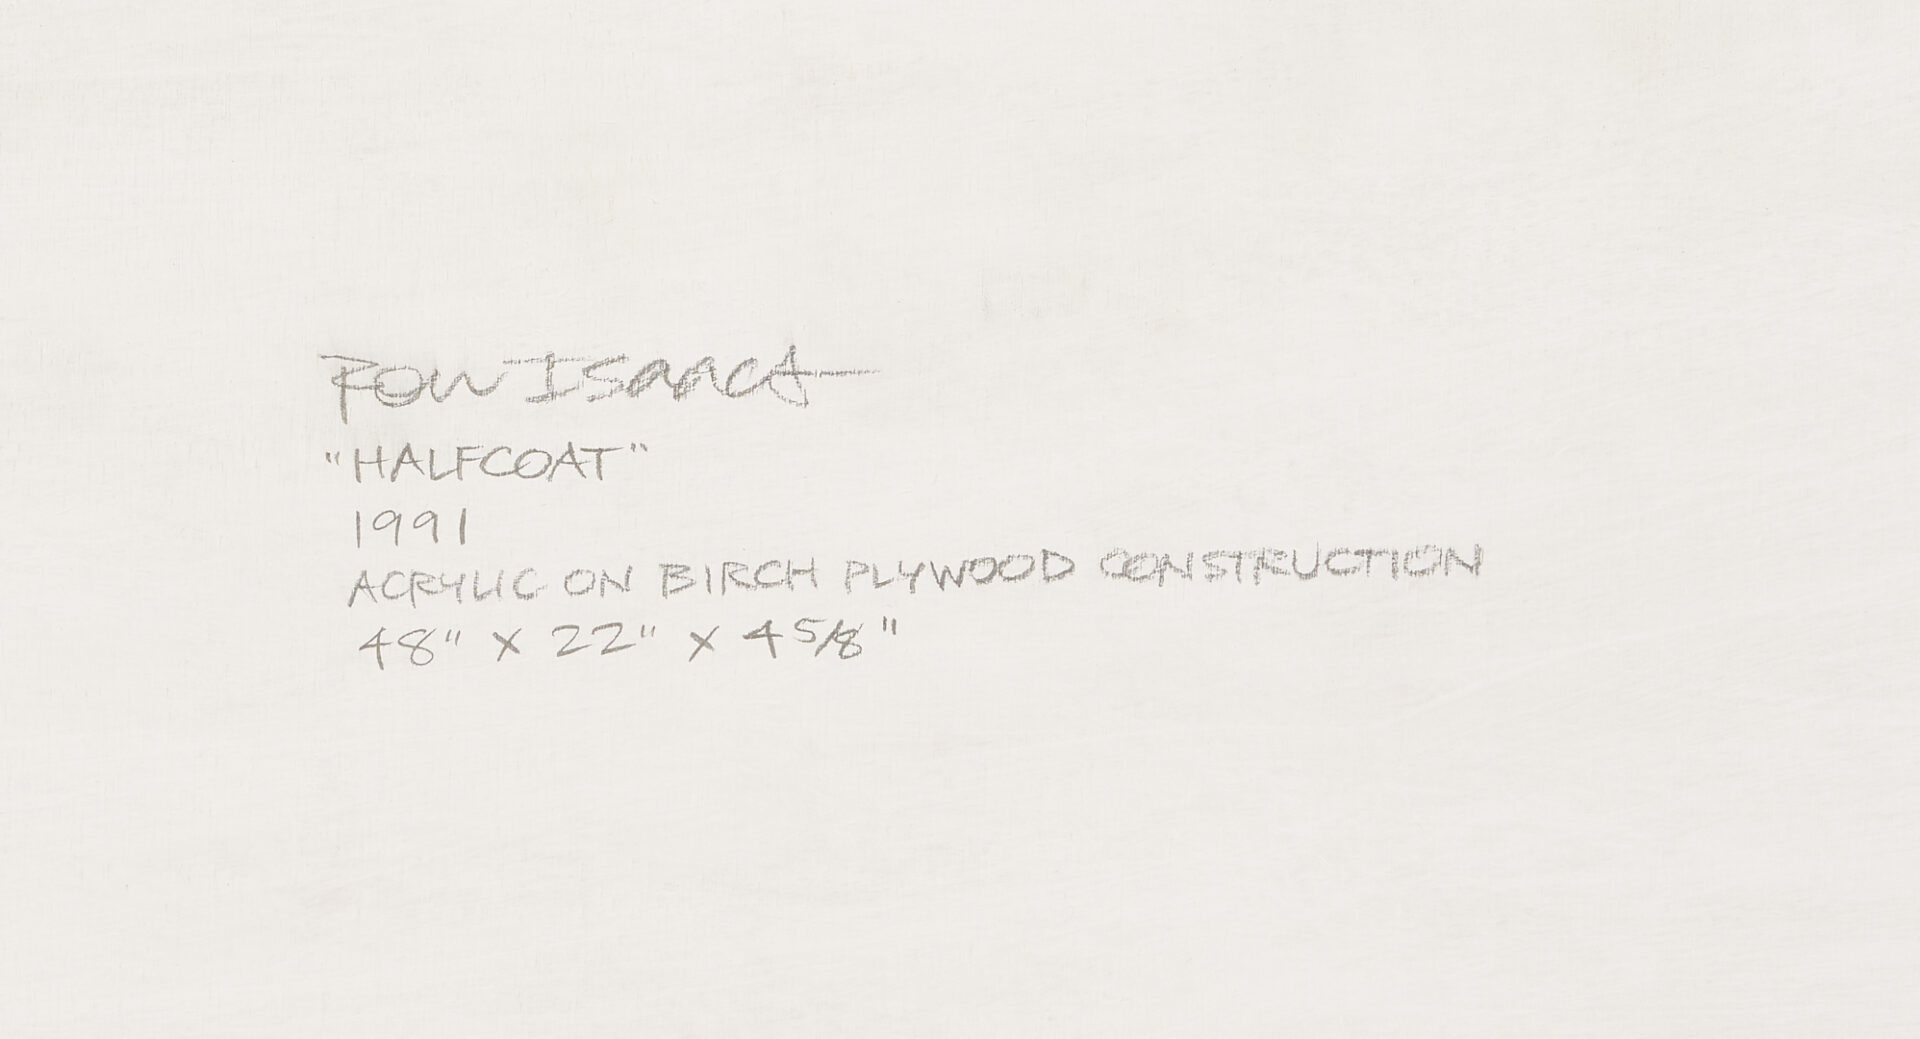 Ron Isaacs
"HALFCOAT"
1991
ACRYLIC ON BIRCH PLYWOOD CONSTRUCTION
48" X 22" X 4 5/8"